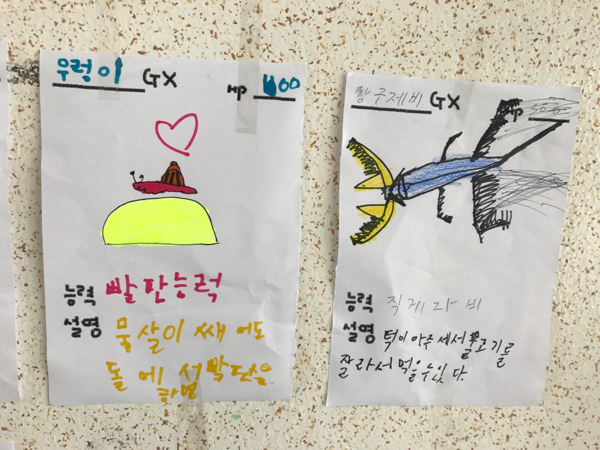 우렁이 GX HP 600
능력 빨판능력
설명 물살이 쌔어도
돌에서 빡단을
하면
황구제비 GX HP
능력 직게라비
설명 턱이 아주 세서 물고기를
잘라서 먹을 수 있다.